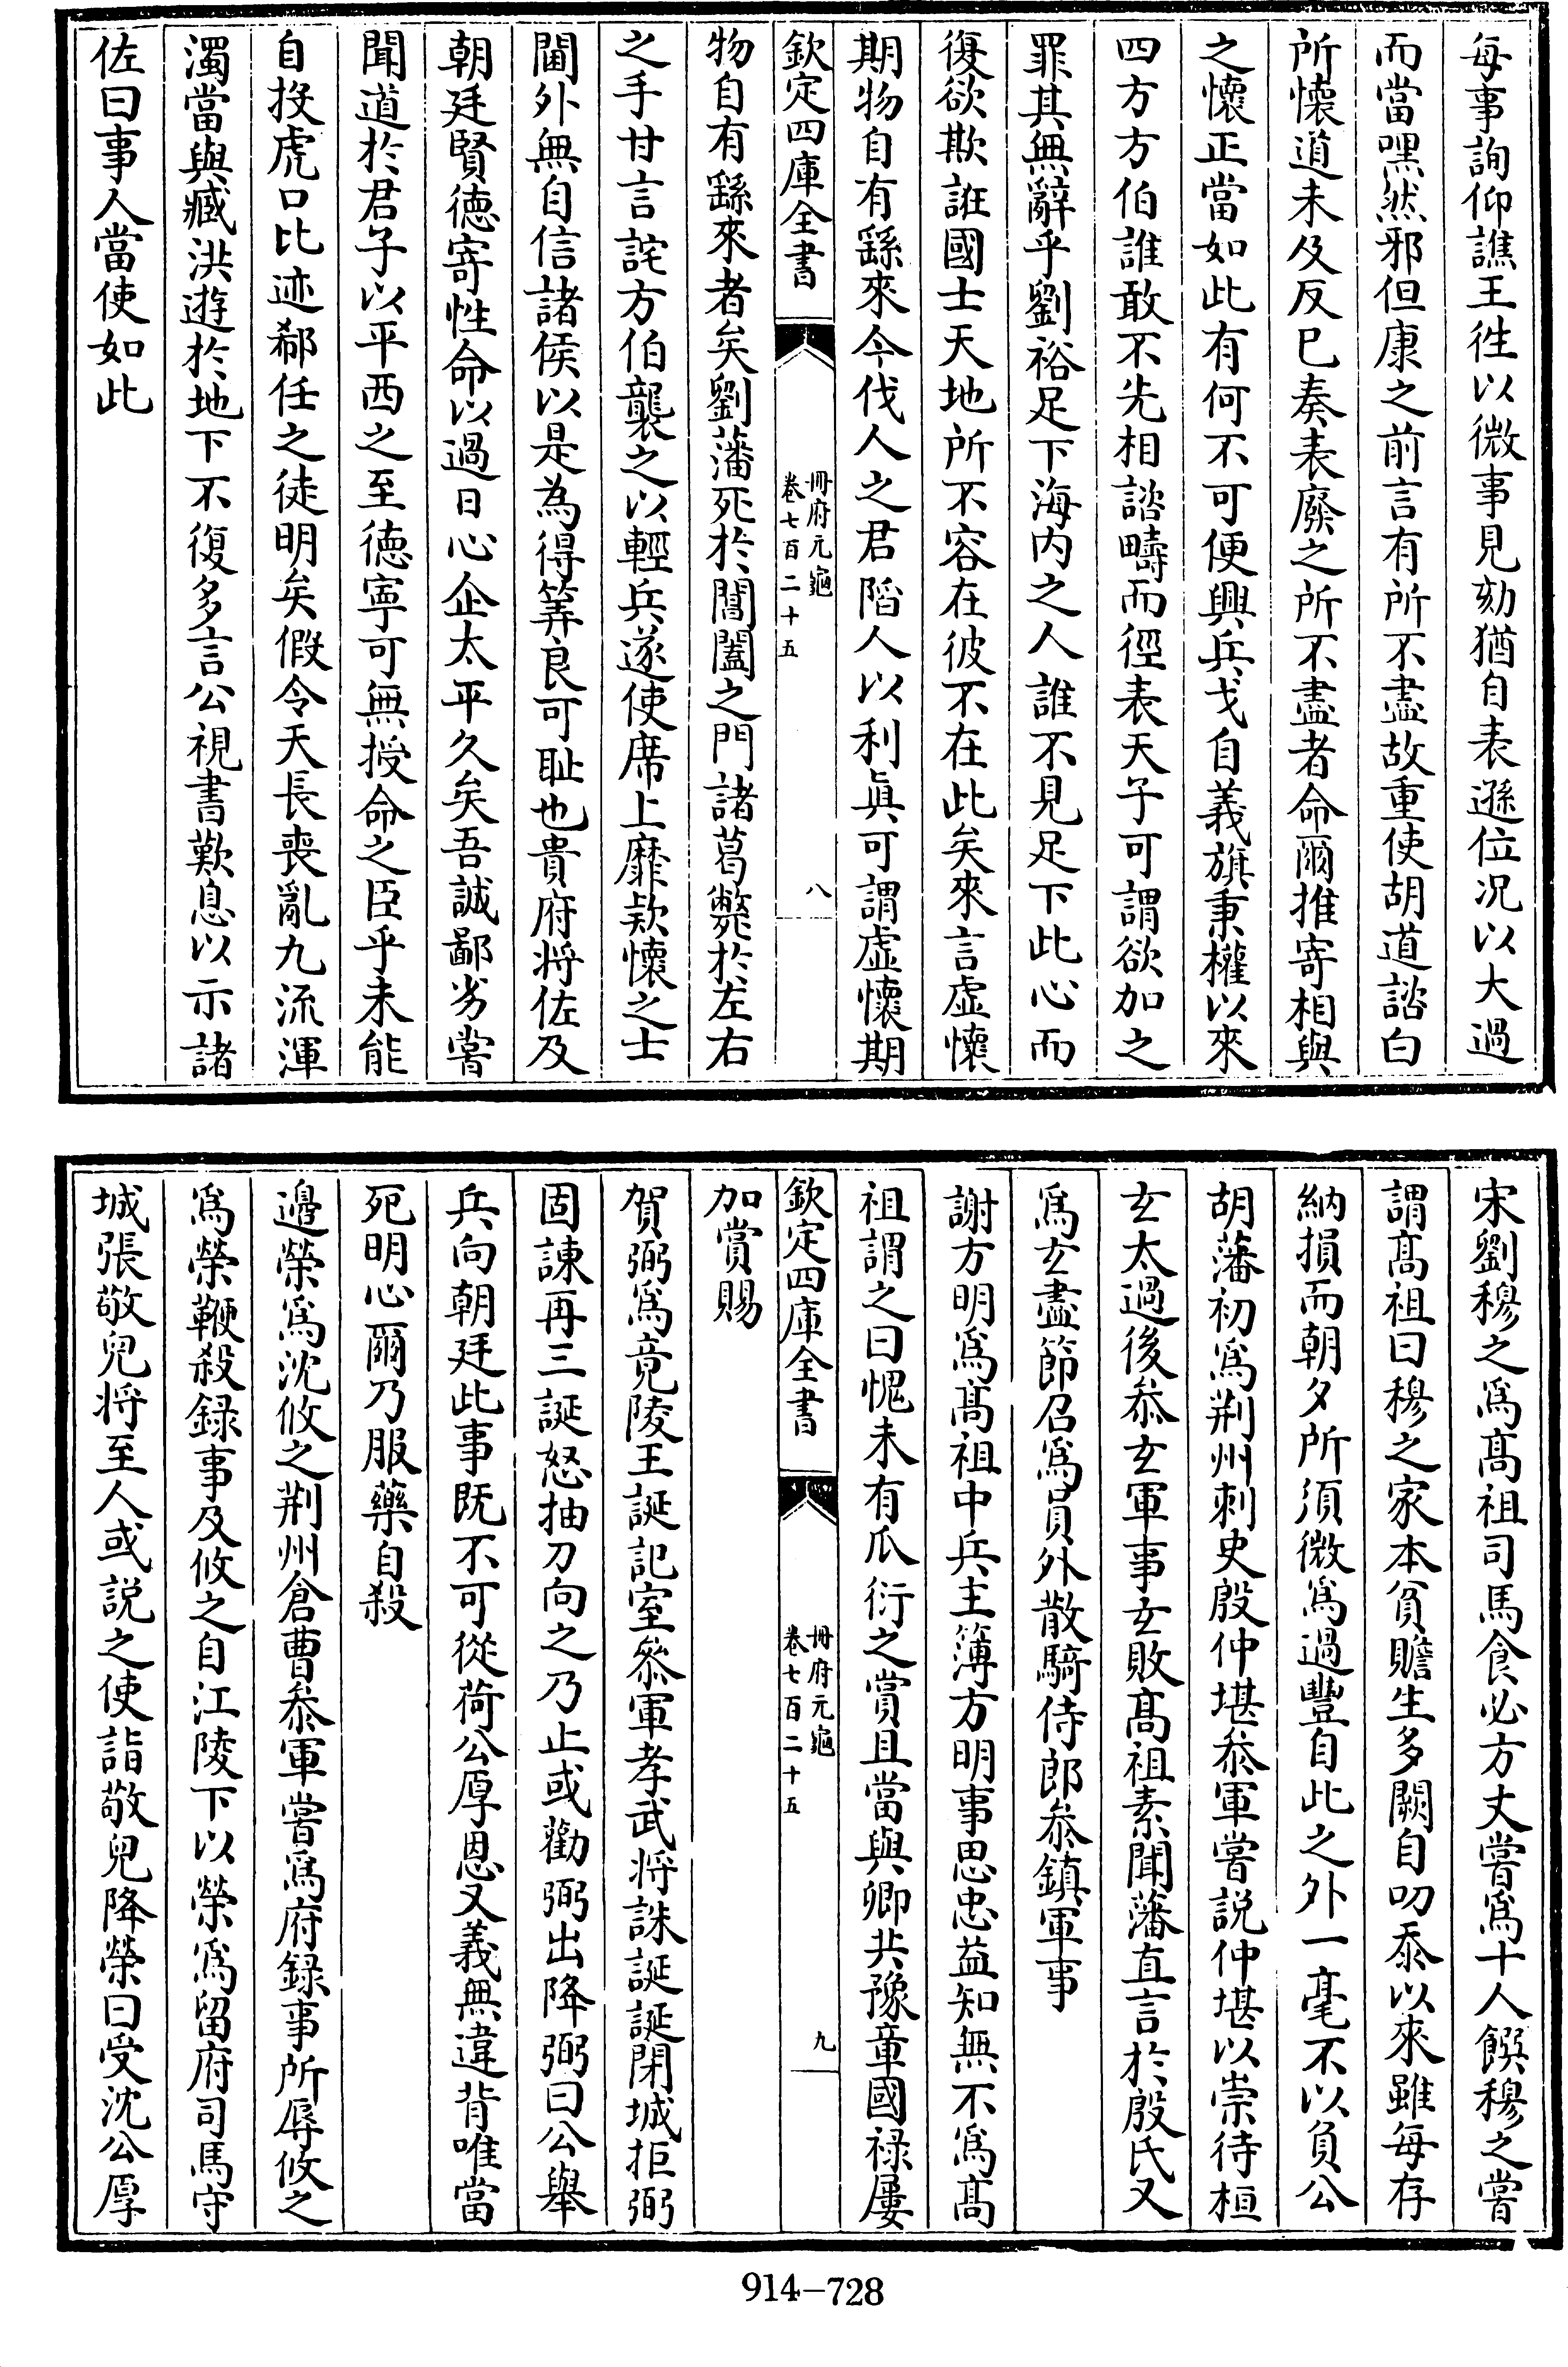 每事詢仰譙王徃以微事見劾猶自表遜位况以大過
而當嘿然邪但康之前言有所不盡故重使胡道諮白
所懷道未及反巳奏表廢之所不盡者命爾推寄相與
之懷正當如此有何不可便興兵戈自義旗秉權以來
四方方伯誰敢不先相諮疇而徑表天子可謂欲加之
罪其無辭乎劉裕足下海内之人誰不見足下此心而
復欲欺誑國士天地所不容在彼不在此矣來言虚懷
期物自有繇來今伐人之君陷人以利眞可謂虚懷期
欽定四庫全書
冊府元龜
卷七百二十五
八
物自有繇來者矣劉藩死於閶闔之門諸葛斃於左右
之手甘言詫方伯襲之以輕兵遂使席上靡欵懷之士
閫外無自信諸侯以是為得筭良可耻也貴府将佐及
朝廷賢德寄性命以過日心企太平久矣吾誠鄙劣嘗
聞道於君子以平西之至德寧可無授命之臣乎未能
自投虎口比迹郗任之徒明矣假令天長喪亂九流渾
濁當與臧洪遊於地下不復多言公視書歎息以示諸
佐曰事人當使如此
宋劉穆之爲髙祖司馬食必方丈嘗爲十人饌穆之嘗
謂髙祖曰穆之家本貧贍生多闕自叨忝以來雖每存
納損而朝夕所須微爲過豐自此之外一毫不以負公
胡藩初爲荆州刺史殷仲堪叅軍嘗説仲堪以崇待桓
玄太過後叅玄軍事玄敗髙祖素聞藩直言於殷氏又
爲玄盡節召爲員外散騎侍郎叅鎮軍事
謝方明爲髙祖中兵主簿方明事思忠益知無不爲髙
祖謂之曰愧未有瓜衍之賞且當與卿共豫章國禄屢
欽定四庫全書
冊府元龜
卷七百二十五
九
加賞賜
賀弼爲竟陵王誕記室叅軍孝武将誅誕誕閉城拒弼
固諫再三誕怒抽刀向之乃止或勸弼出降弼曰公舉
兵向朝廷此事既不可從荷公厚恩又義無違背唯當
死明心爾乃服藥自殺
邉榮爲沈攸之荆州倉曹叅軍嘗爲府録事所辱攸之
爲榮鞭殺録事及攸之自江陵下以榮爲留府司馬守
城張敬兒将至人或説之使詣敬兒降榮曰受沈公厚
914-728